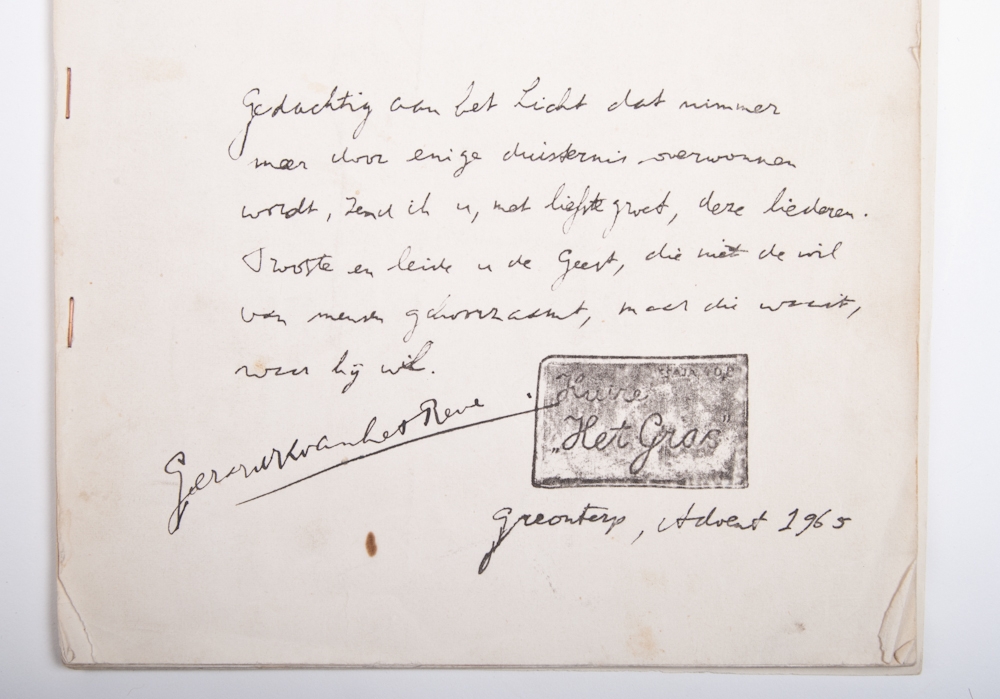 Gedachtig aan het Licht dat nimmer
meer door enige duisternis overwonnen
wordt, zend ik u, met liefste groet, deze liederen.
Trooste en leide u de Geest, die niet de wil
van mensen gehoorzaamt, maar die waait,
waar hij wil.
Huize
„Het Gras"
GerardKvanhetReve
Greonterp, Advent 1965